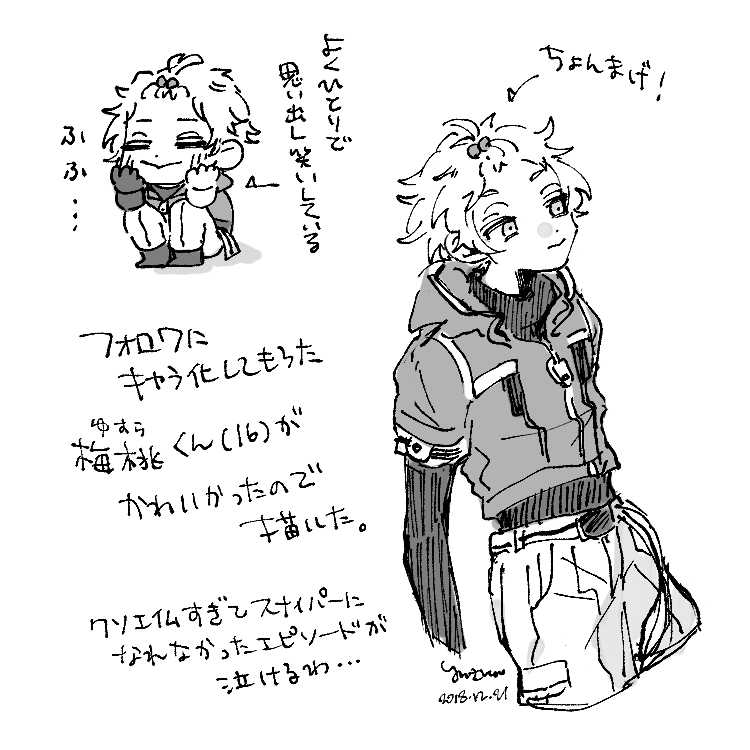 よくひとりで
思い出し笑いしている
ふふ...
ちょんまげ!
フォロワに
キャラ化してもらった
ゆすら
梅桃くん(16)が
かわいかったので
描いた。
クソエイムすぎてスナイパーに
なれなかったエピソードが
泣けるわ...
2018.12.21